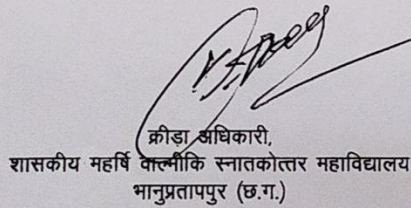 क्रीड़ा अधिकारी,
शासकीय महर्षि वाल्मीकि स्नातकोत्तर महाविद्यालय
भानुप्रतापपुर (छ.ग.)